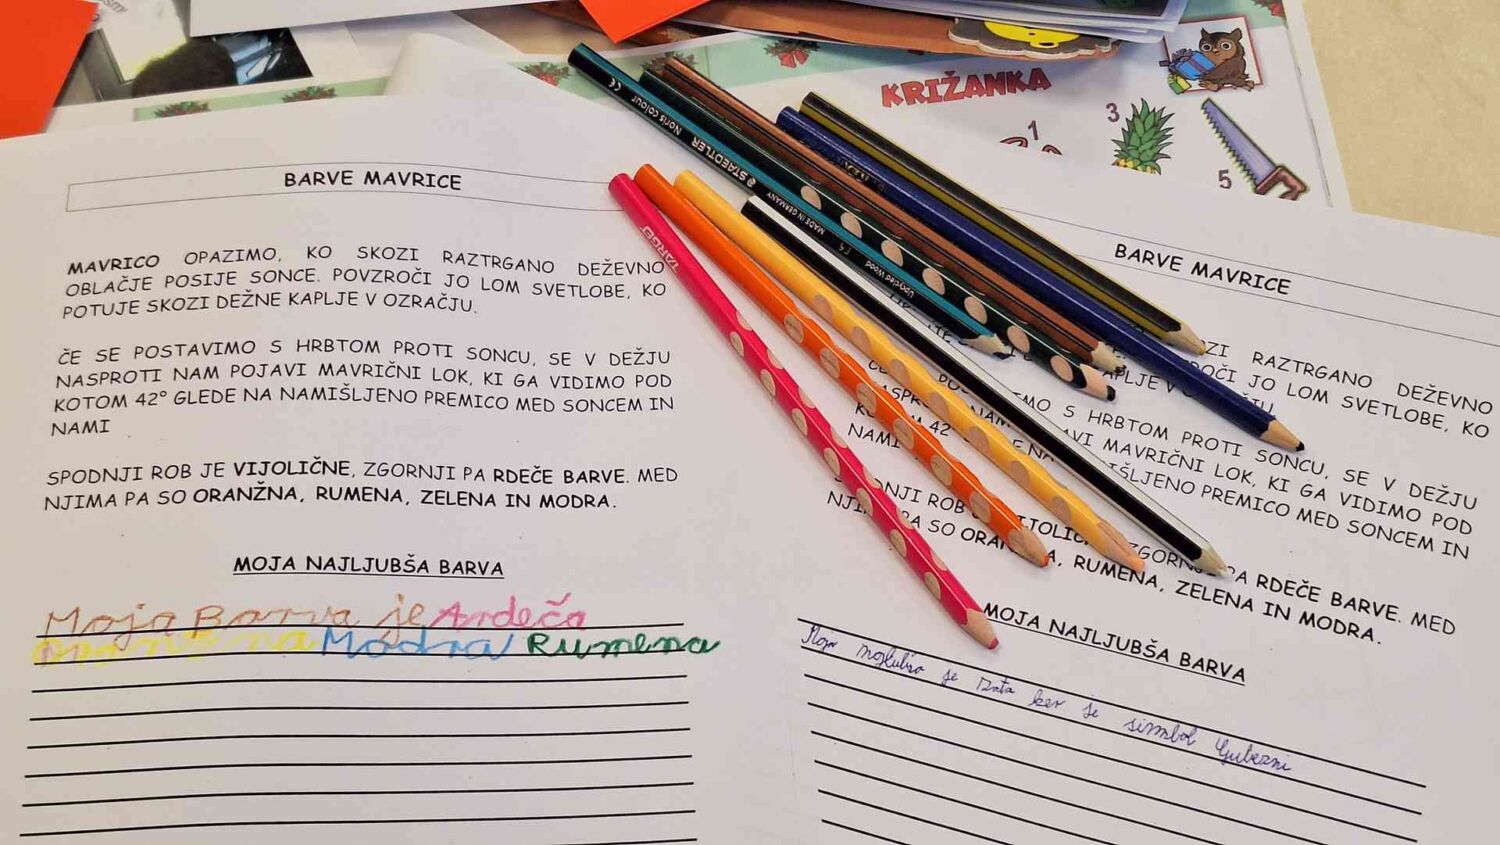 KRIŽANKA
1
3
5
BARVE MAVRICE
MAVRICO OPAZIMO, KO SKOZI RAZTRGANO DEŽEVNO
OBLAČJE POSIJE SONCE. POVZROČI JO LOM SVETLOBE, KO
POTUJE SKOZI DEŽNE KAPLJE V OZRAČJU.
ČE SE POSTAVIMO S HRBTOM PROTI SONCU, SE V DEŽJU
NASPROTI NAM POJAVI MAVRIČNI LOK, KI GA VIDIMO POD
KOTOM 42° GLEDE NA NAMIŠLJENO PREMICO MED SONCEM IN
NAMI
SPODNJI ROB JE VIJOLIČNE, ZGORNJI PA RDEČE BARVE. MED
NJIMA PA SO ORANŽNA, RUMENA, ZELENA IN MODRA.
MOJA NAJLJUBŠA BARVA
Moja Barva je Ardeča
Modra Rumena
STAEDTLER
Noris colour
MADE IN GERMANY
Upcycled Wood
TARGET
BARVE MAVRICE
RAZTRGANO DEŽEVNO
JO LOM SVETLOBE, KO
S HRBTOM PROTI SONCU, SE V DEŽJU
MAVRIČNI LOK, KI GA VIDIMO POD
PREMICO MED SONCEM IN
NAMI
RDEČE BARVE. MED
RUMENA, ZELENA IN MODRA.
MOJA NAJLJUBŠA BARVA
je ker je simbol ljubezni